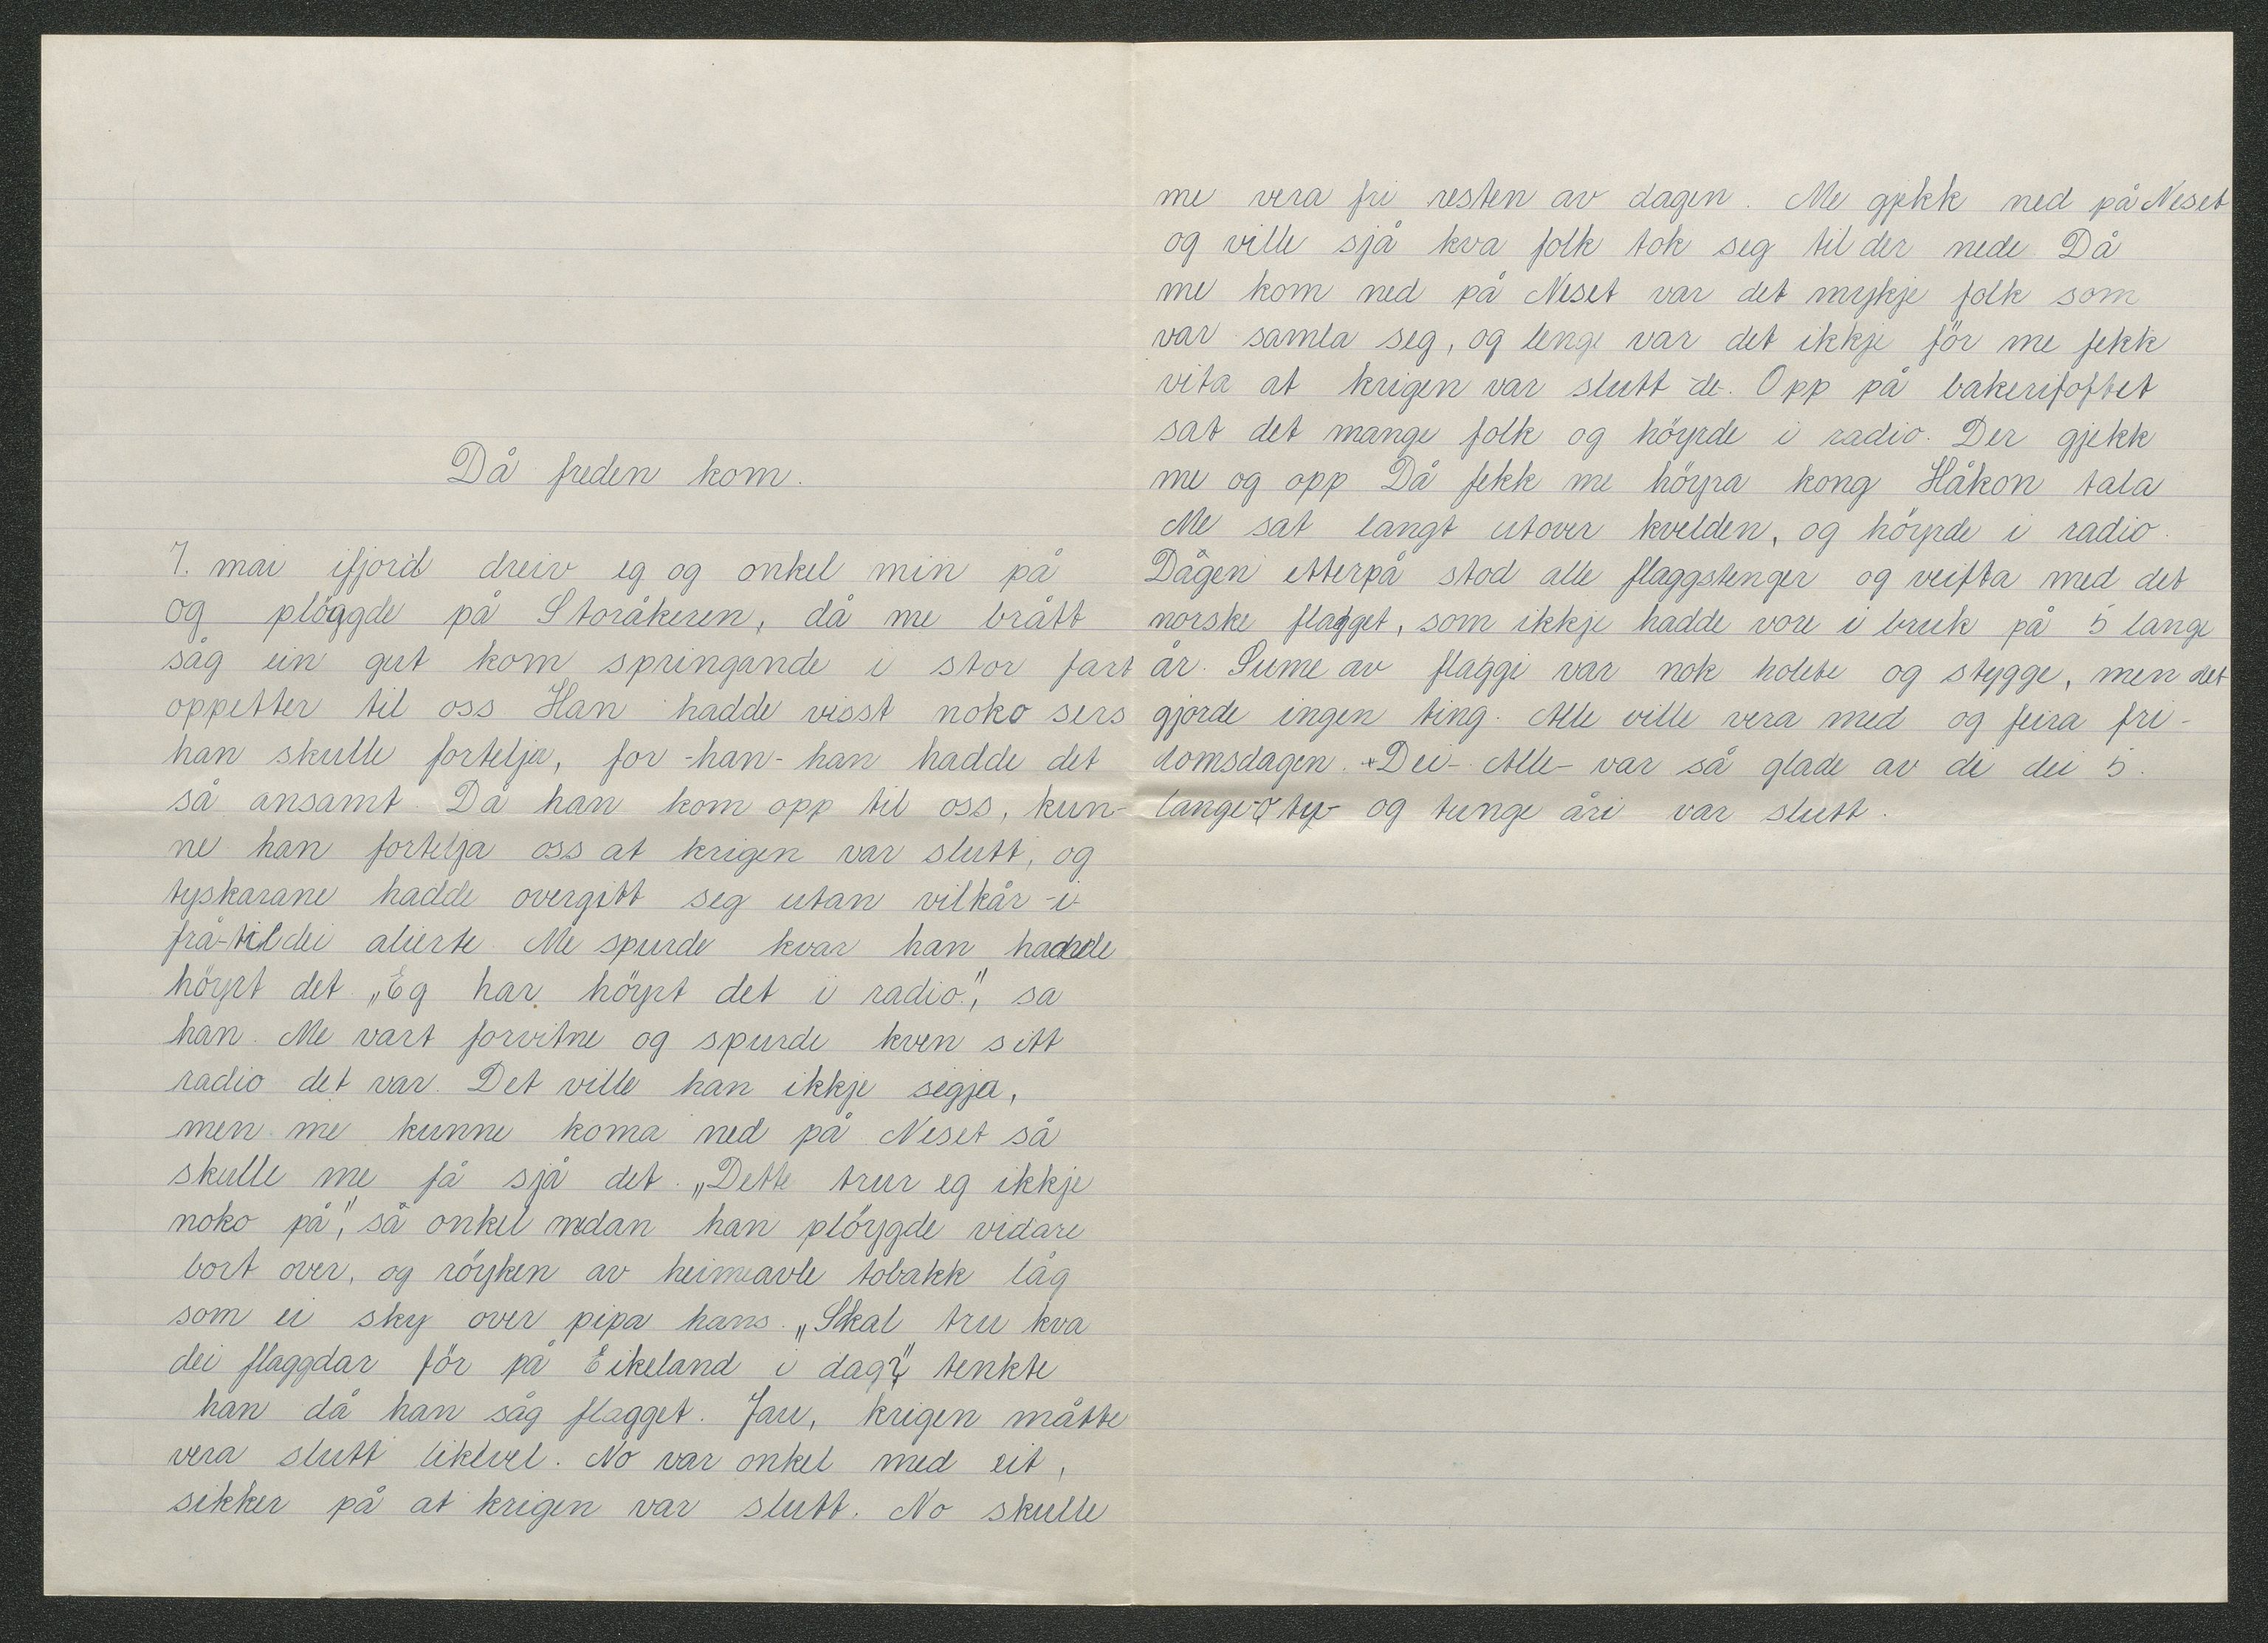 Då freden kom.
7. mai ifjord dreiv eg og onkel min på
og plöggde på Storåkeren, då me brått
såg ein gut kom springande i stor fart
oppetter til oss Han hadde visst noko sers
han skulle fortelja, for -han- han hadde det
så ansamt. Då han kom opp til oss, kun-
ne han fortelja oss at krigen var slutt, og
tyskarane hadde overgitt seg utan vilkår -i-
frå- til dei alierte. Me spurde kvar han hadde
höyrt det. „Eg har höyrt det i radio.", sa
han. Me vart forvitne og spurde kven sitt
radio det var. Det ville han ikkje segja,
men me kunne koma ned på Neset så
skulle me få sjå det. „Dette trur eg ikkje
noko på", sa onkel medan han plöygde vidare
bort over, og röyken av heimeavle tobakk låg
som ei sky over pipa hans. „Skal tru kva
dei flaggdar för på Eikeland i dag?" tenkte
han då han såg flagget. Jau, krigen måtte
vera slutt likevel. No var onkel med eit,
sikker på at krigen var slutt. No skulle
me vera fri resten av dagen. Me gjekk ned på Neset
og ville sjå kva folk tok seg til der nede. Då
me kom ned på Neset var det mykje folk som
var samla seg, og lenge var det ikkje för me fekk
vita at krigen var slutt de-. Opp på bakeriloftet
sat det mange folk og höyrde i radio. Der gjekk
me og opp Då fekk me höyra kong Håkon tala
Me sat langt utover kvelden, og höyrde i radio.
Dagen etterpå stod alle flaggstenger og veifta med det
norske flagget, som ikkje hadde vore i bruk på 5 lange
år. Sume av flaggi var nok holete og stygge, men det
gjorde ingen ting. Alle ville vera med og feira fri-
domsdagen. -Dei- Alle- var så glade av di dei 5.
lange -o ty- og tunge åri var slutt.